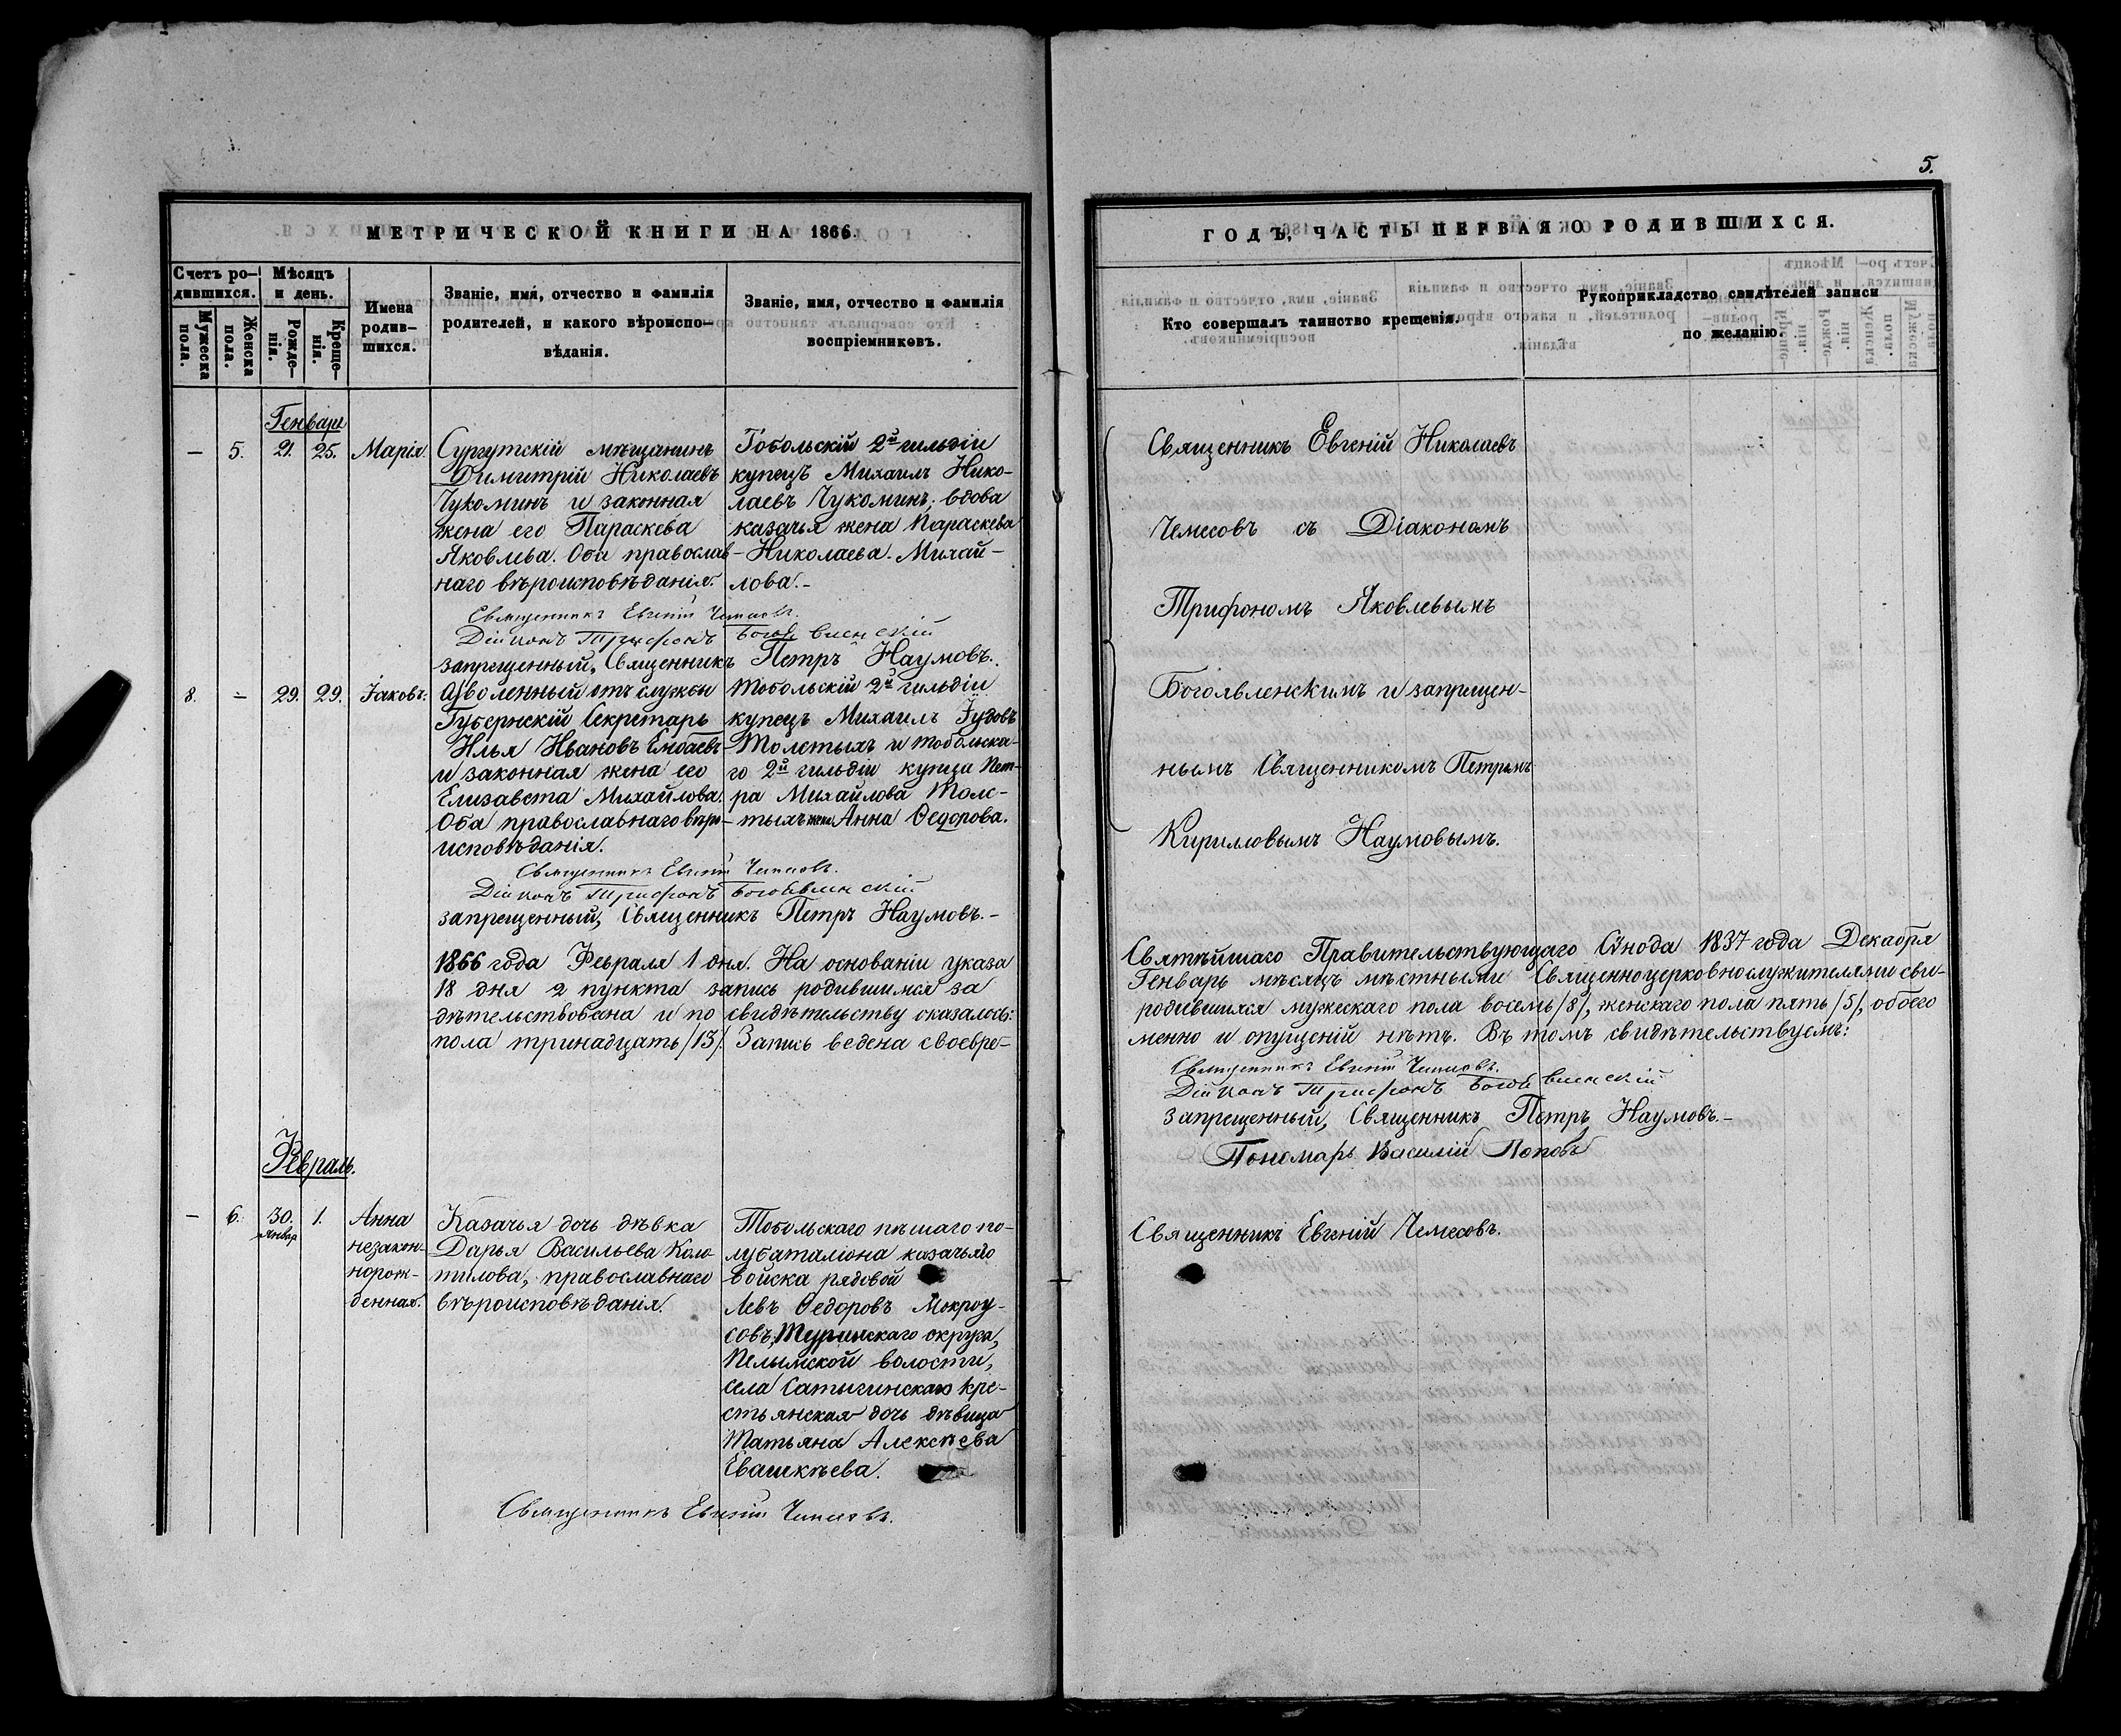 5.
МЕТРИЧЕСКОЙ КНИГИ НА 1866.
Счетъ ро-
дившихся.
Мѣсяцъ
и день.
Мужеска
пола.
Женска
пола.
Рожде-
нія.
Креще-
нія.
Имена
родив-
шихся.
Званіе, имя, отчество и фамилія
родителей, и какого вѣроиспо-
вѣданія.
Званіе, имя, отчество и фамилія
воспріемниковъ.
Генварь
— 5. 21. 25. Марія.
Сургутскій мѣщанинъ
Димитрій Николаевъ
Чукоминъ и законная
жена его Параскева
Яковлева. Оба православ-
наго вѣроисповѣданія.
Тобольскій 2й гильдіи
купецъ Михаилъ Нико-
лаевъ Чукоминъ; вдова
казачья жена Параскева
Николаева Михай-
лова.-
Священникъ Евгеній Чемесовъ.
Діаконъ Трифонъ Богоявленскій
запрещенный, Священникъ Петръ Наумовъ.
8. — 29. 29. Іаковъ.
Уволенный отъ службы
Губернскій Секретарь
Илья Ивановъ
и законная жена его
Елизавета Михайлова.
Оба православнаго вѣро-
исповѣданія.
Тобольскій 2й гильдіи
купецъ Михаилъ Іудовъ
Толстыхъ и тобольска-
го 2й гильдіи купца Пет-
ра Михайлова Толс-
тыхъ жена Анна Ѳедорова.
Священникъ Евгеній Чемесовъ.
Діаконъ Трифонъ Богоявленскій
запрещенный, Священникъ Петръ Наумовъ.-
1866 года Февраля 1 дня. На основаніи указа
18 дня 2 пункта запись родившимся за
дѣтельствована и по свидѣтельству оказалось:
пола тринадцать /13/. Запись ведена своевре-
Февраль.
— 6. 30. Январ 1.
Анна
незакон-
норож-
денная.
Казачья дочь дѣвка
Дарья Васильева Коло-
тилова, православнаго
вѣроисповѣданія.
Тобольскаго пѣшаго по-
лубаталіона казачьяго
войска рядовой
Левъ Ѳедоровъ Мокроу-
совъ, Туринскаго округа,
Пелымской волости,
села Сатыгинскаго кре-
стьянская дочь дѣвица
Татьяна Алексѣева
Евашкѣева.
Священникъ Евгеній Чемесовъ.
ГОДЪ, ЧАСТЬ ПЕРВАЯ О РОДИВШИХСЯ.
Кто совершалъ таинство крещенія.
Рукоприкладство свидѣтелей записи
по желанію.
Священникъ Евгеній Николаевъ
Чемесовъ съ Діакономъ
Трифономъ Яковлевымъ
Богоявленскимъ и запрещен-
нымъ Священникомъ Петромъ
Кирилловымъ Наумовымъ.
Святѣйшаго Правительствующаго Сѵнода 1837 года Декабря
Генварь мѣсяцъ мѣстными Священноцерковнослужителями сви-
родившихся мужескаго пола восемь /8/, женскаго пола пять /5/, обоего
менно и опущеній нѣтъ. Въ томъ свидѣтельствуемъ:
Священникъ Евгеній Чемесовъ.
Діаконъ Трифонъ Богоявленскій
Запрещенный, Священникъ Петръ Наумовъ.-
Пономарь Василій Поповъ
Священникъ Евгеній Чемесовъ.